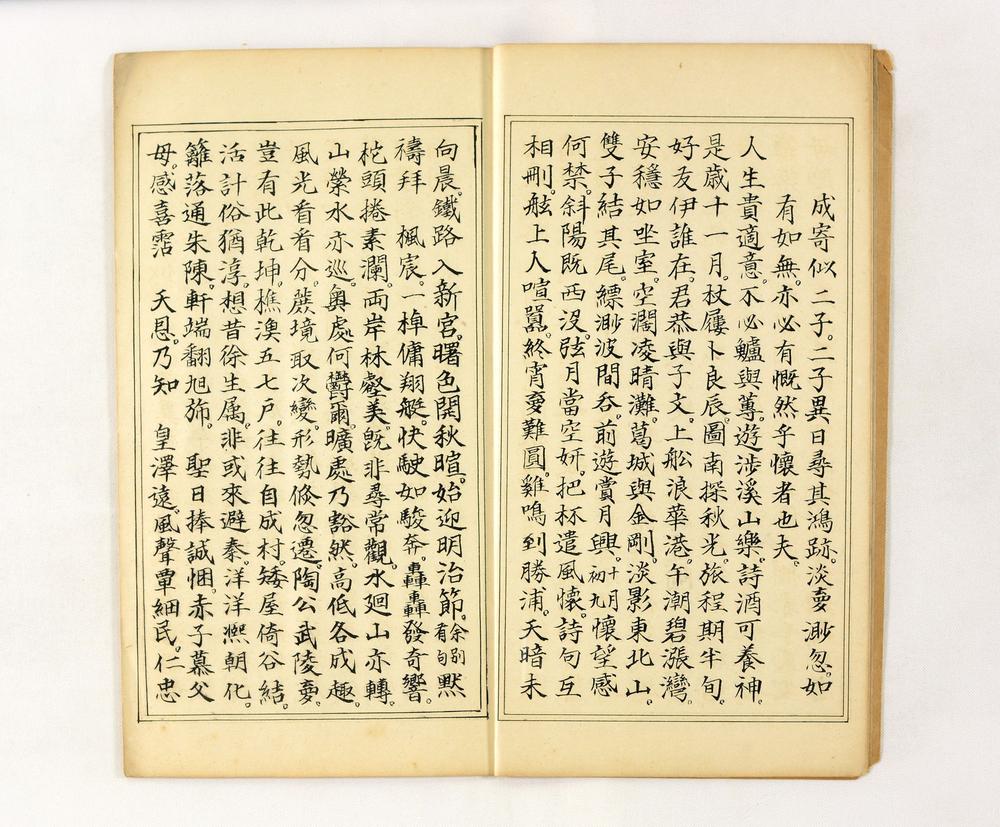 成寄似 二子。二子異日尋其鴻跡。淡夢渺忽。如
有如無。亦必有慨然乎懷者也夫。
人生貴適意。不必鱸與蓴。遊涉溪山樂。詩酒可養神。
是歳十一月。杖屨卜良辰。圖南探秋光。旅程期半旬。
好友伊誰在。君恭與子文。上舩浪華港。午潮碧漲灣。
安穩如坐室。空濶凌晴灘。葛城與金剛。淡影東北山。
雙子結其尾。縹渺波間呑。前遊賞月興。初九十月懷望感
何禁。斜陽既西没。弦月當空妍。把杯遣風懷。詩句互
相刪。舷上人喧囂。終宵夢難圓。雞鳴到勝浦。天暗未
向晨。鐵路入新宮。曙色開秋暄。始迎明治節。余別有句默
禱拜 楓宸。一棹傭翔艇。快駛如駿奔。轟轟發奇響。
柁頭捲素瀾。両岸林壑美。既非尋常觀。水廻山亦轉。
山縈水亦巡。奥處何欝爾。曠處乃豁然。高低各成趣。
風光看看分。蔗境取次變。形勢倏忽遷。陶公武陵夢。
豈有此乾坤。樵漁五七戸。往往自成村。矮屋倚谷結。
活計俗猶淳。想昔徐生属。非或來避秦。洋洋熈朝化。
籬落通朱陳。軒端翻旭斾。 聖日捧誠悃。赤子慕父
母。感喜霑 天恩。乃知 皇澤遠。風聲覃細民。仁忠